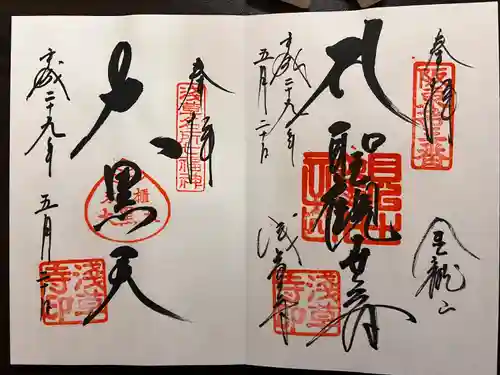 奉拝
阪東第十三番
金龍山
聖観世音
平成二十九年
五月二十日
浅草寺
浅草寺印
奉拝
浅草名所七福神
大黒天
平成二十九年
五月二十日
浅草寺印